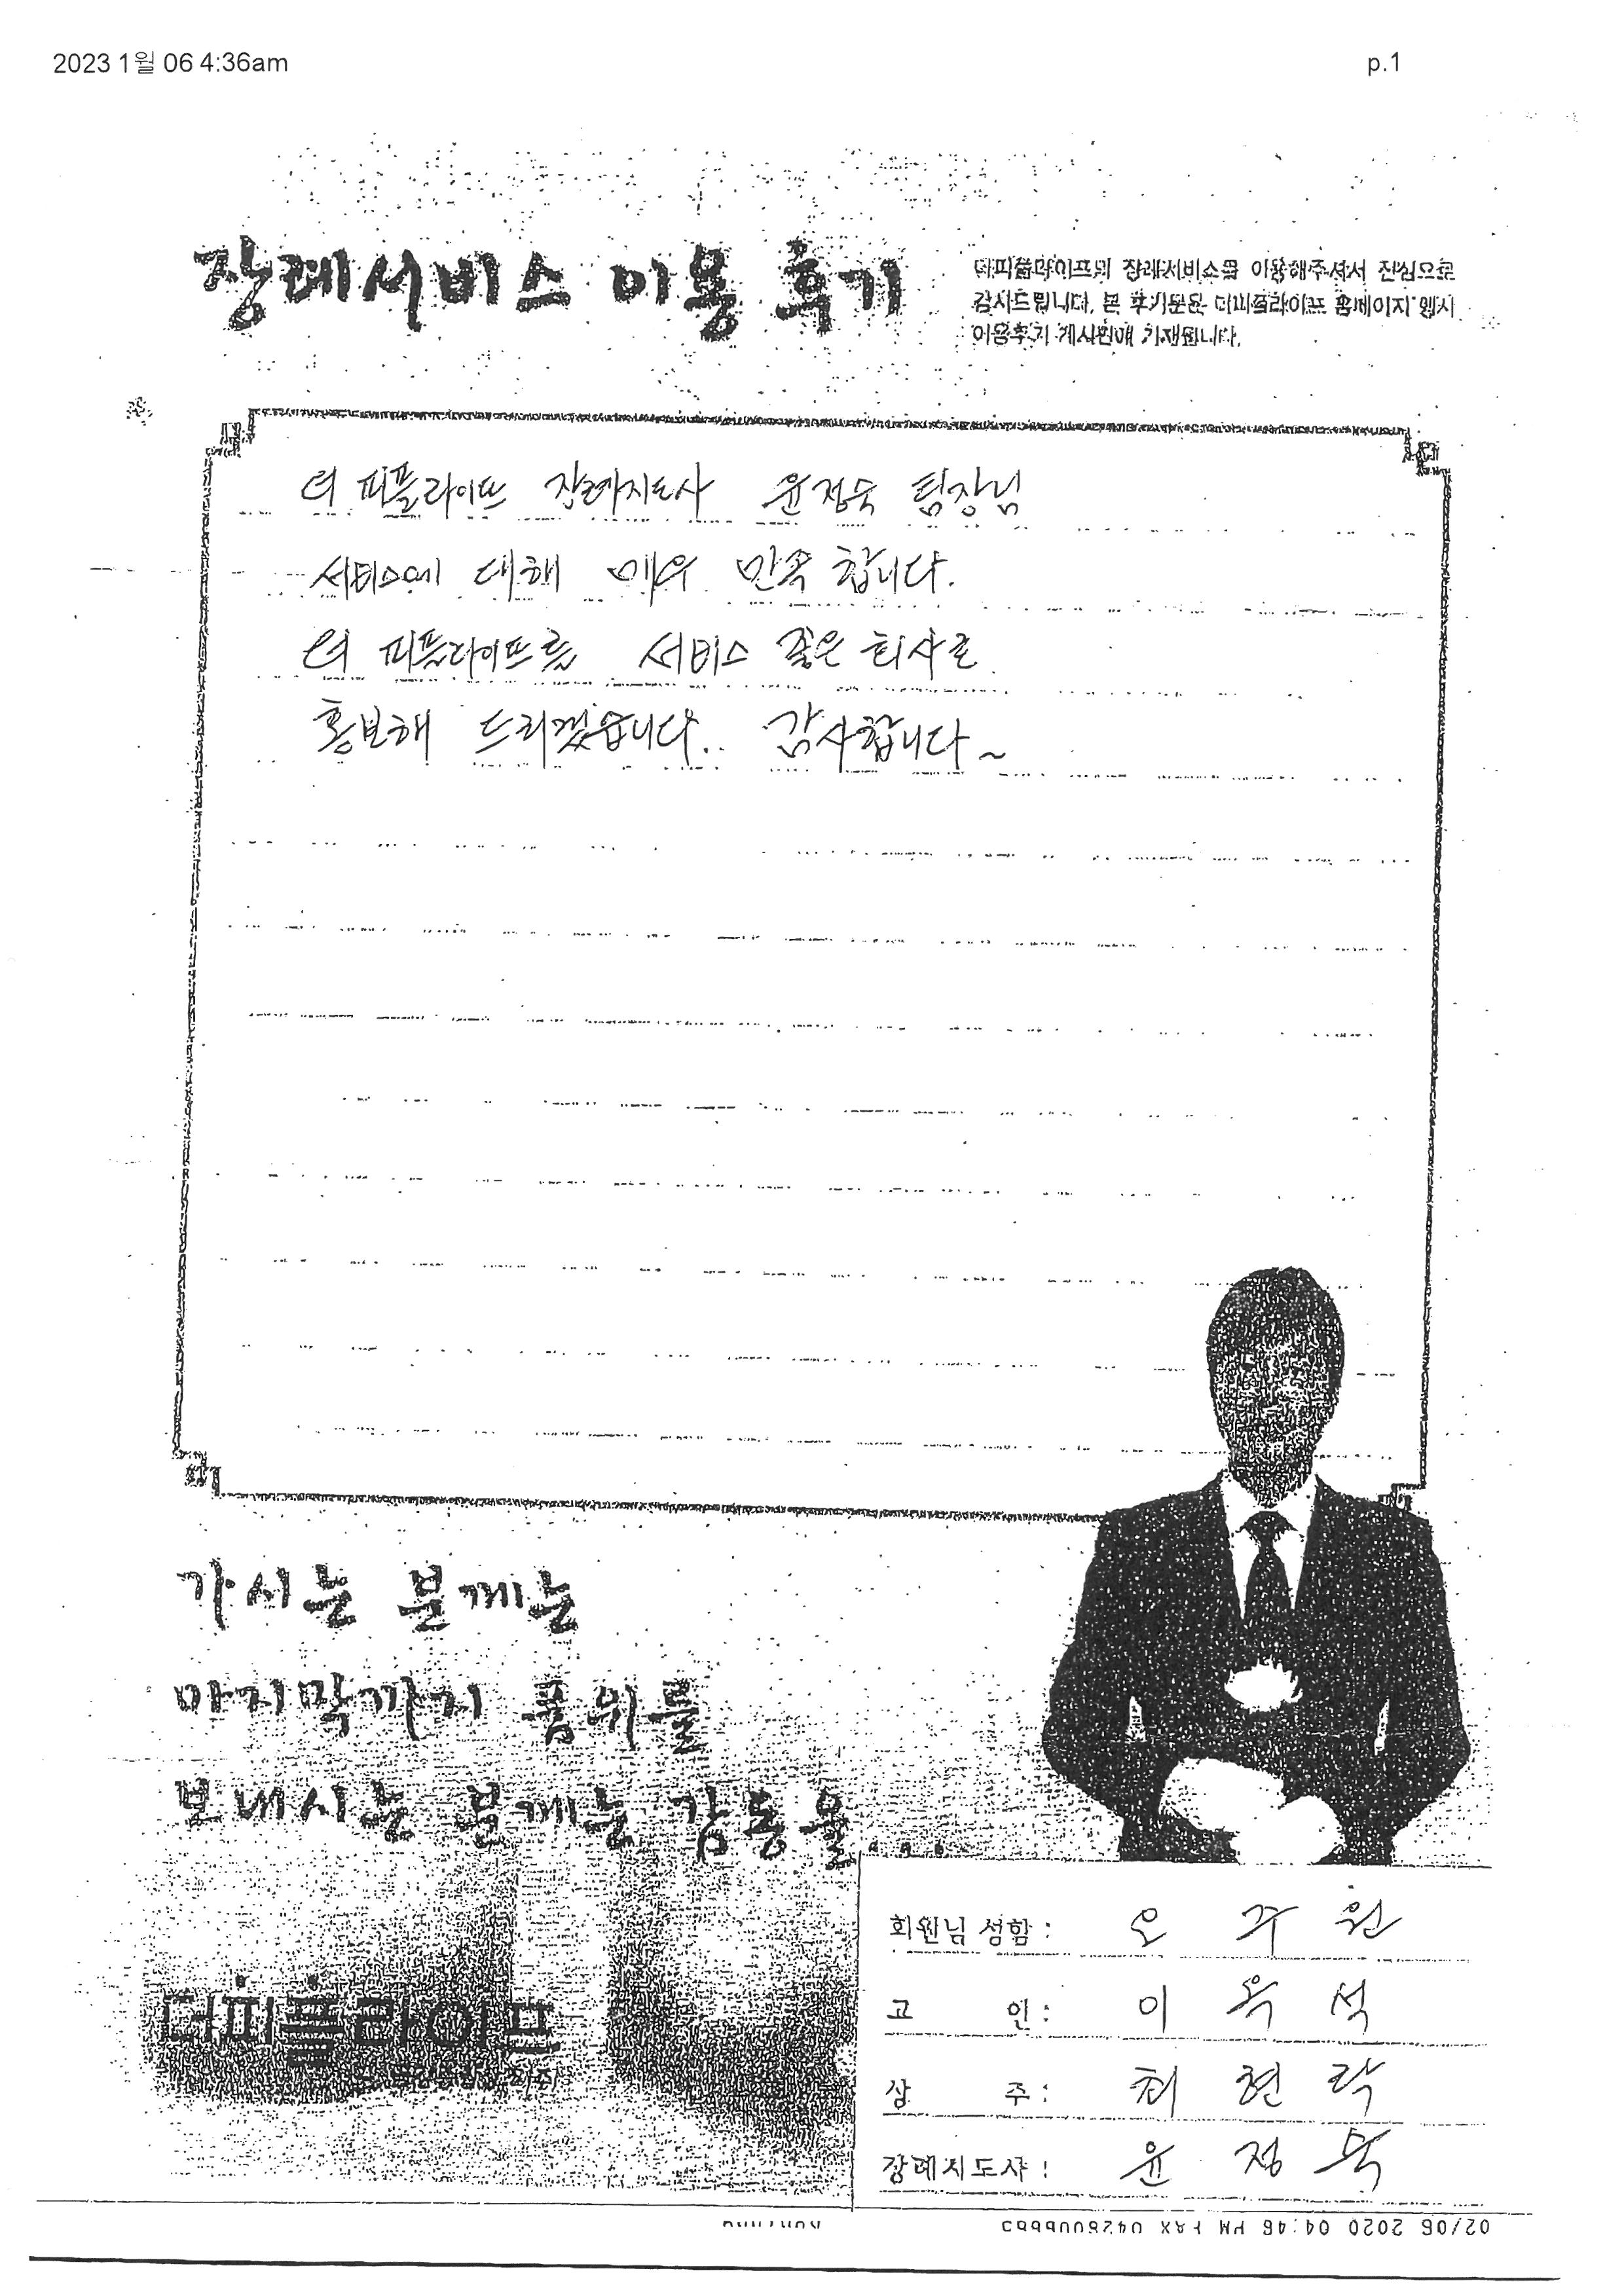 2023 1월 06 4:36am
p.1
장례서비스 이용 후기
더피플라이프의 장례서비스를 이용해주셔서 진심으로
감사드립니다. 본 후기문은 더피플라이프 홈페이지 행사
이용후기 게시판에 기재됩니다.
더 피플라이프 장례지도사 윤정숙 팀장님
서비스에 대해 매우 만족 합니다.
더 피플라이프를 서비스 좋은 회사로
홍보해 드리겠습니다.. 감사합니다~
가시는 분께는
마지막까지 품위를
보내시는 분께는 감동을...
회원님 성함 : 오 주 원
고 인 : 이 옥 석
상 주 : 최 현 락
장례지도사 : 윤 정 숙
더피플라이프
02/06 2020 04:46 PM FAX